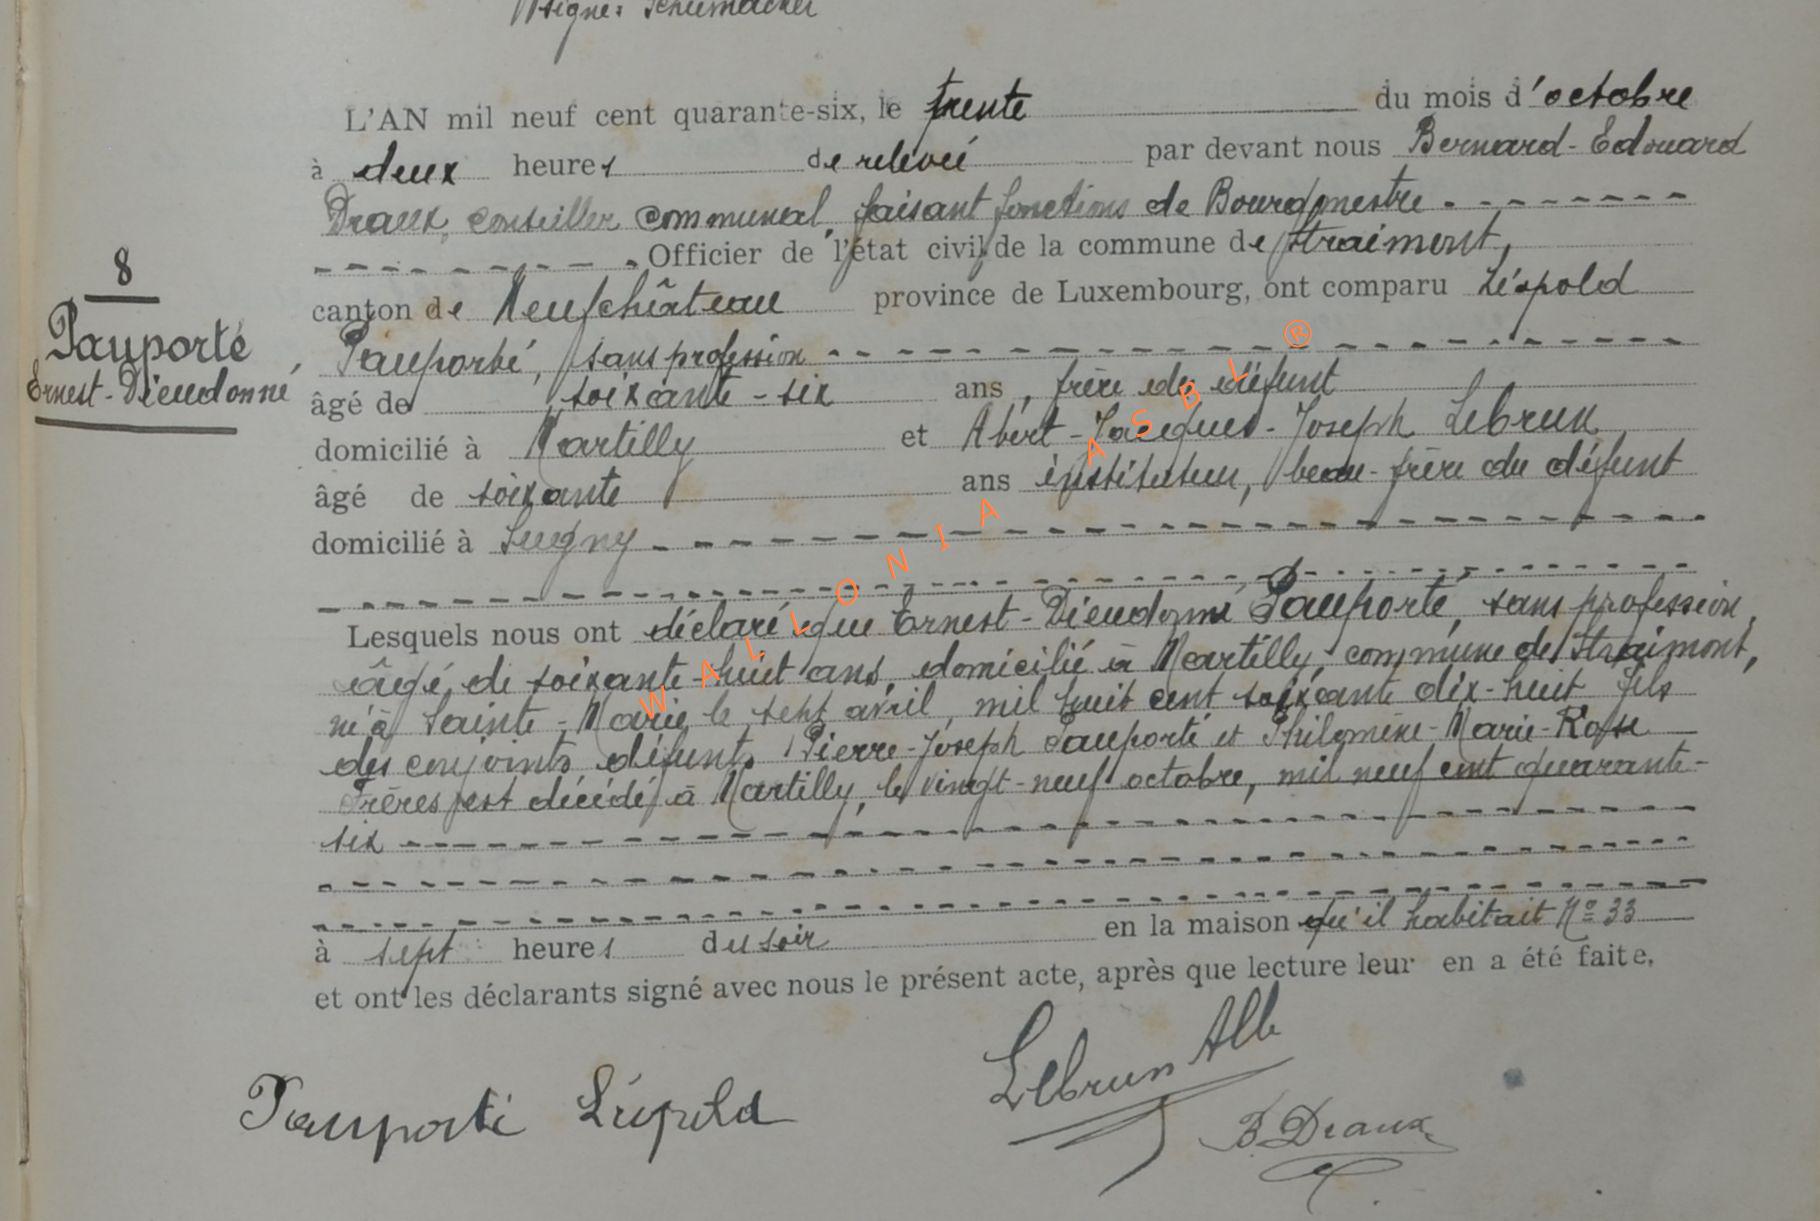 Signé: Schumacker
L'AN mil neuf cent quarante-six, le trente du mois d'octobre
à deux heures de relevée par devant nous Bernard-Edouard
Draux, conseiller communal, faisant fonctions de Bourgmestre
Officier de l'état civil de la commune de Straimont,
8
canton de Neufchâteau province de Luxembourg, ont comparu Léopold
Pauporté,
Pauporté, sans profession
Ernest-Dieudonné
âgé de soixante-six ans, frère du défunt
domicilié à Martilly et Albert-Jacques-Joseph Lebrun
âgé de soixante ans instituteur, beau-frère du défunt
domicilié à Suxy
Lesquels nous ont déclaré que Ernest-Dieudonné Pauporté, sans profession,
âgé de soixante-huit ans, domicilié à Martilly, commune de Straimont,
né à Sainte-Marie le sept avril, mil huit cent soixante dix-huit fils
des conjoints défunts Pierre-Joseph Pauporté et Philomène-Marie-Rose
Frères, est décédé à Martilly, le vingt-neuf octobre, mil neuf cent quarante-
six
à sept heures du soir en la maison qu'il habitait N° 33
et ont les déclarants signé avec nous le présent acte, après que lecture leur en a été faite.
Lebrun Alb
Pauporté Léopold
B. Draux
WALLONIA ASBL ®